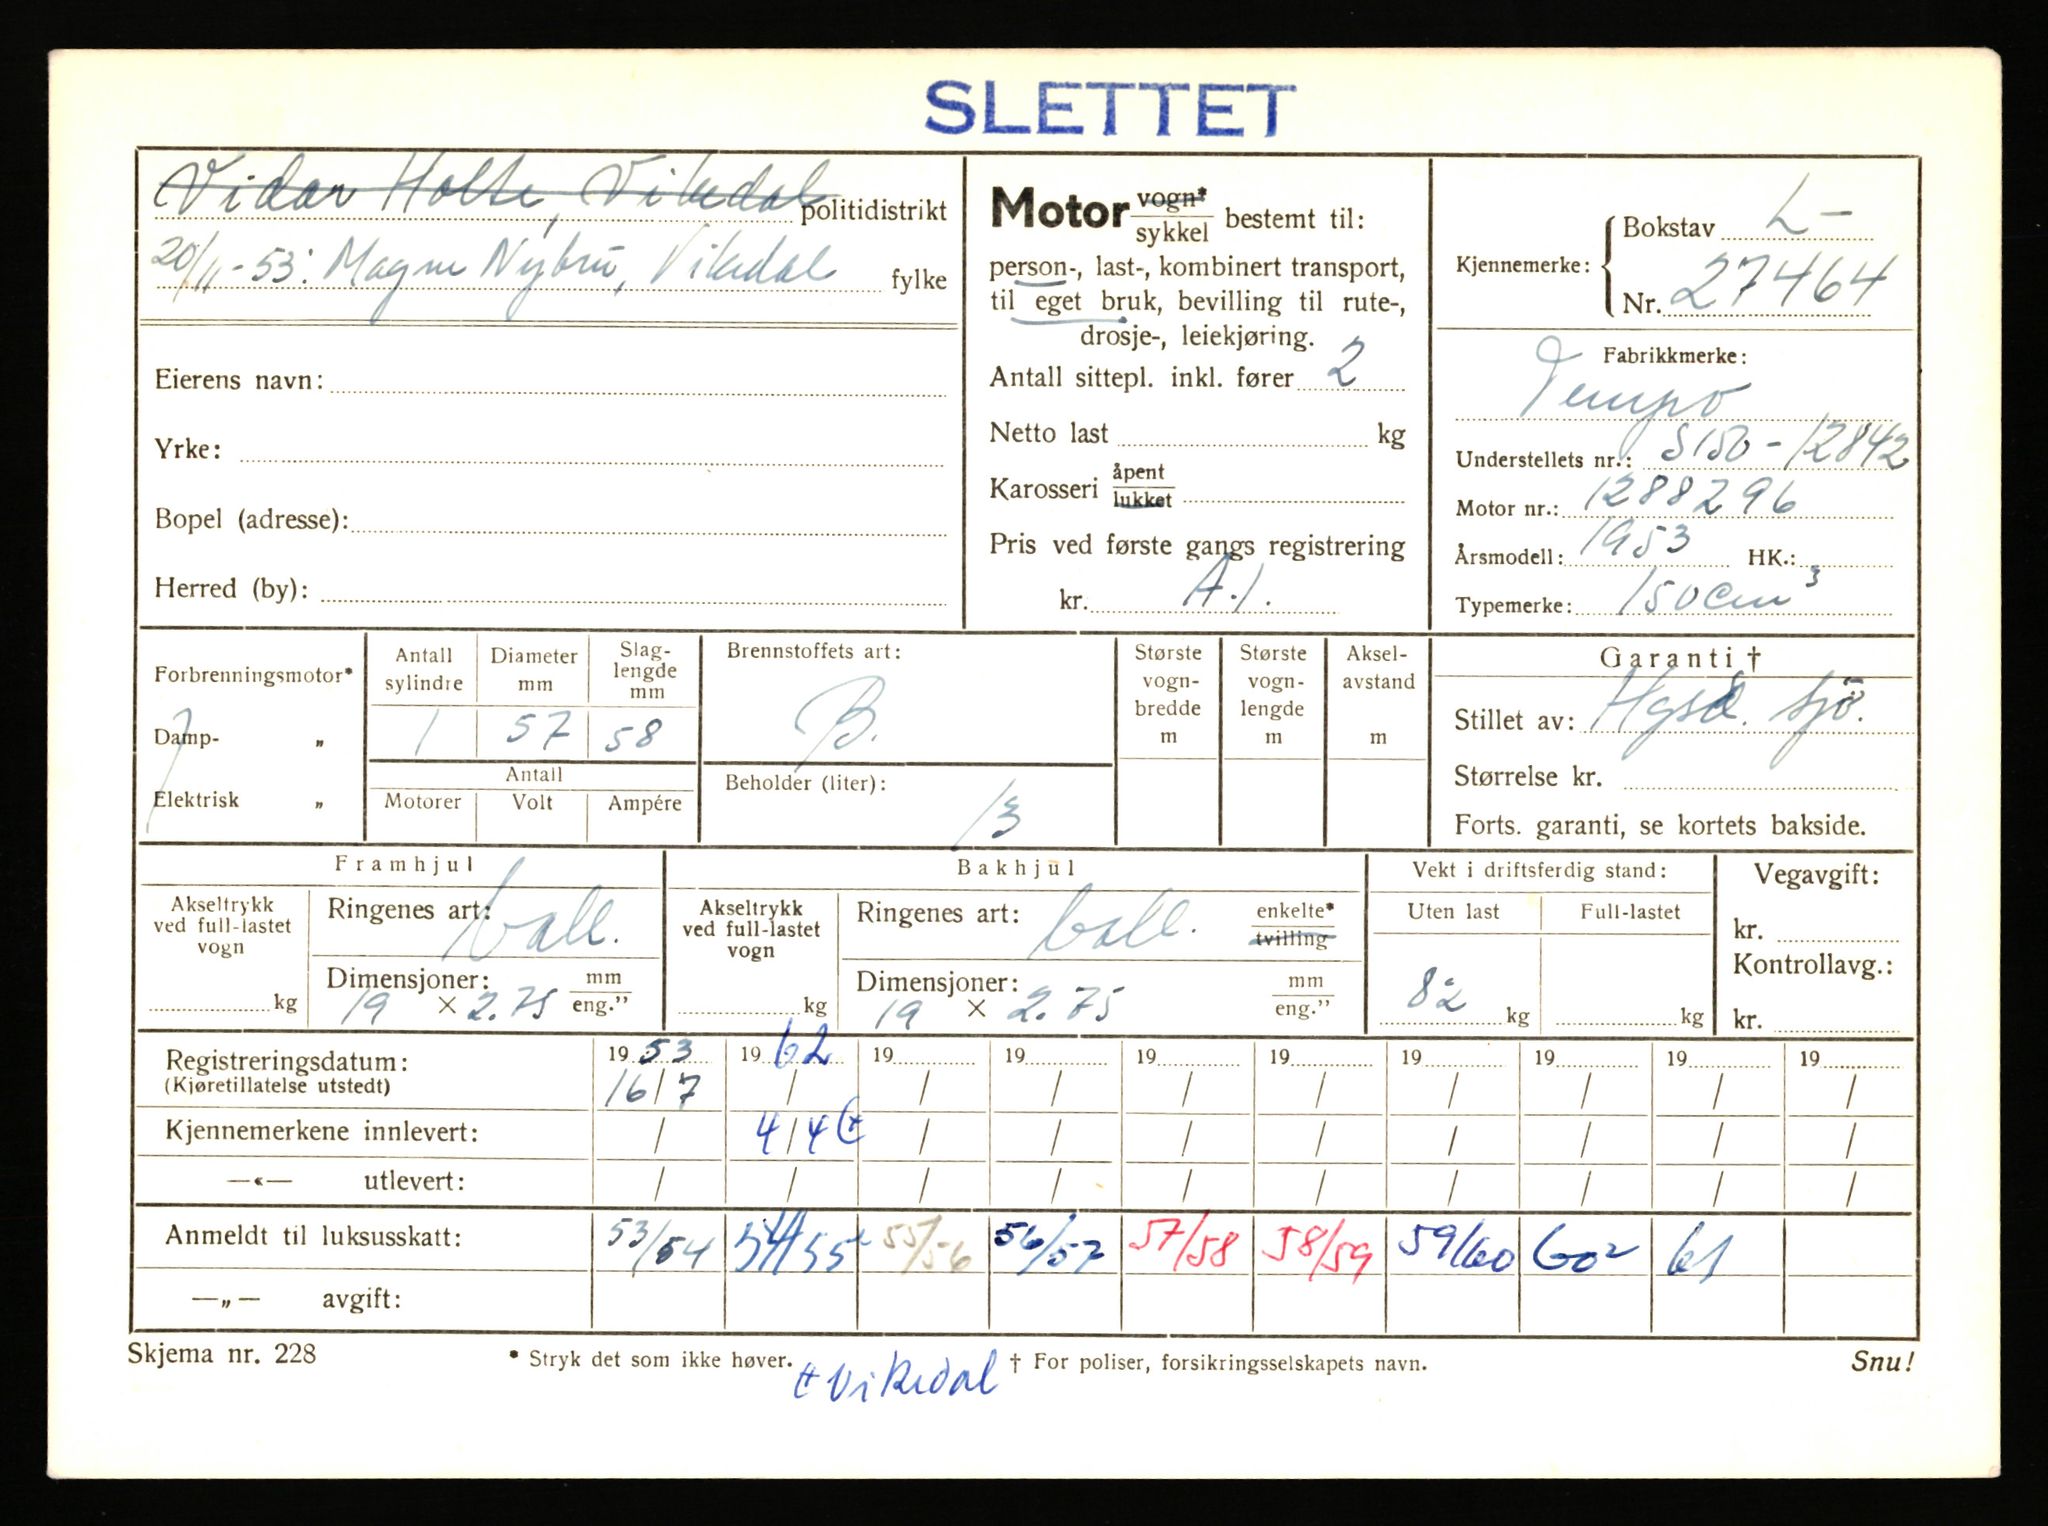 SLETTET
Vidar Holte, Vikedal politidistrikt
20/11-53: Magne Nybru, Vikedal fylke
Eierens navn:
Yrke:
Bopel (adresse):
Herred (by):
Motor vogn* sykkel bestemt til:
person-, last-, kombinert transport,
til eget bruk, bevilling til rute-,
drosje-, leiekjøring.
Antall sittepl. inkl. fører 2
Netto last kg
Karosseri åpent lukket
Pris ved første gangs registrering
kr. A.1.
Kjennemerke: Bokstav L-
Nr. 27464
Fabrikkmerke:
Tempo
Understellets nr.: S150-12842
Motor nr.: 1288296
Årsmodell: 1953 HK.:
Typemerke: 150 cm³
Forbrenningsmotor*
Damp- „
Elektrisk „
Antall sylindre Diameter mm Slaglengde mm
1 57 58
Antall
Motorer Volt Ampére
Brennstoffets art:
B.
Beholder (liter):
13
Største vogn-bredde m
Største vogn-lengde m
Aksel-avstand m
Garanti †
Stillet av: sjø.
Størrelse kr.
Forts. garanti, se kortets bakside.
Framhjul
Akseltrykk ved full-lastet vogn kg
Ringenes art: ball.
Dimensjoner: mm eng.”
19 × 2.75
Bakhjul
Akseltrykk ved full-lastet vogn kg
Ringenes art: ball. enkelte* tvilling
Dimensjoner: mm eng.”
19 × 2.75
Vekt i driftsferdig stand:
Uten last Full-lastet
82 kg kg
Vegavgift:
kr.
Kontrollavg.:
kr.
Registreringsdatum: 19 53 19 62 19 19 19 19 19 19 19 19
(Kjøretillatelse utstedt) 16/7 / / / / / / / / /
Kjennemerkene innlevert: / 4/4 / / / / / / / /
—«— utlevert: / / / / / / / / / /
Anmeldt til luksusskatt: 53/54 54/55 55/56 56/57 57/58 58/59 59/60 60² 61
—„— avgift:
Skjema nr. 228 * Stryk det som ikke høver. † For poliser, forsikringsselskapets navn. Snu!
Vikedal